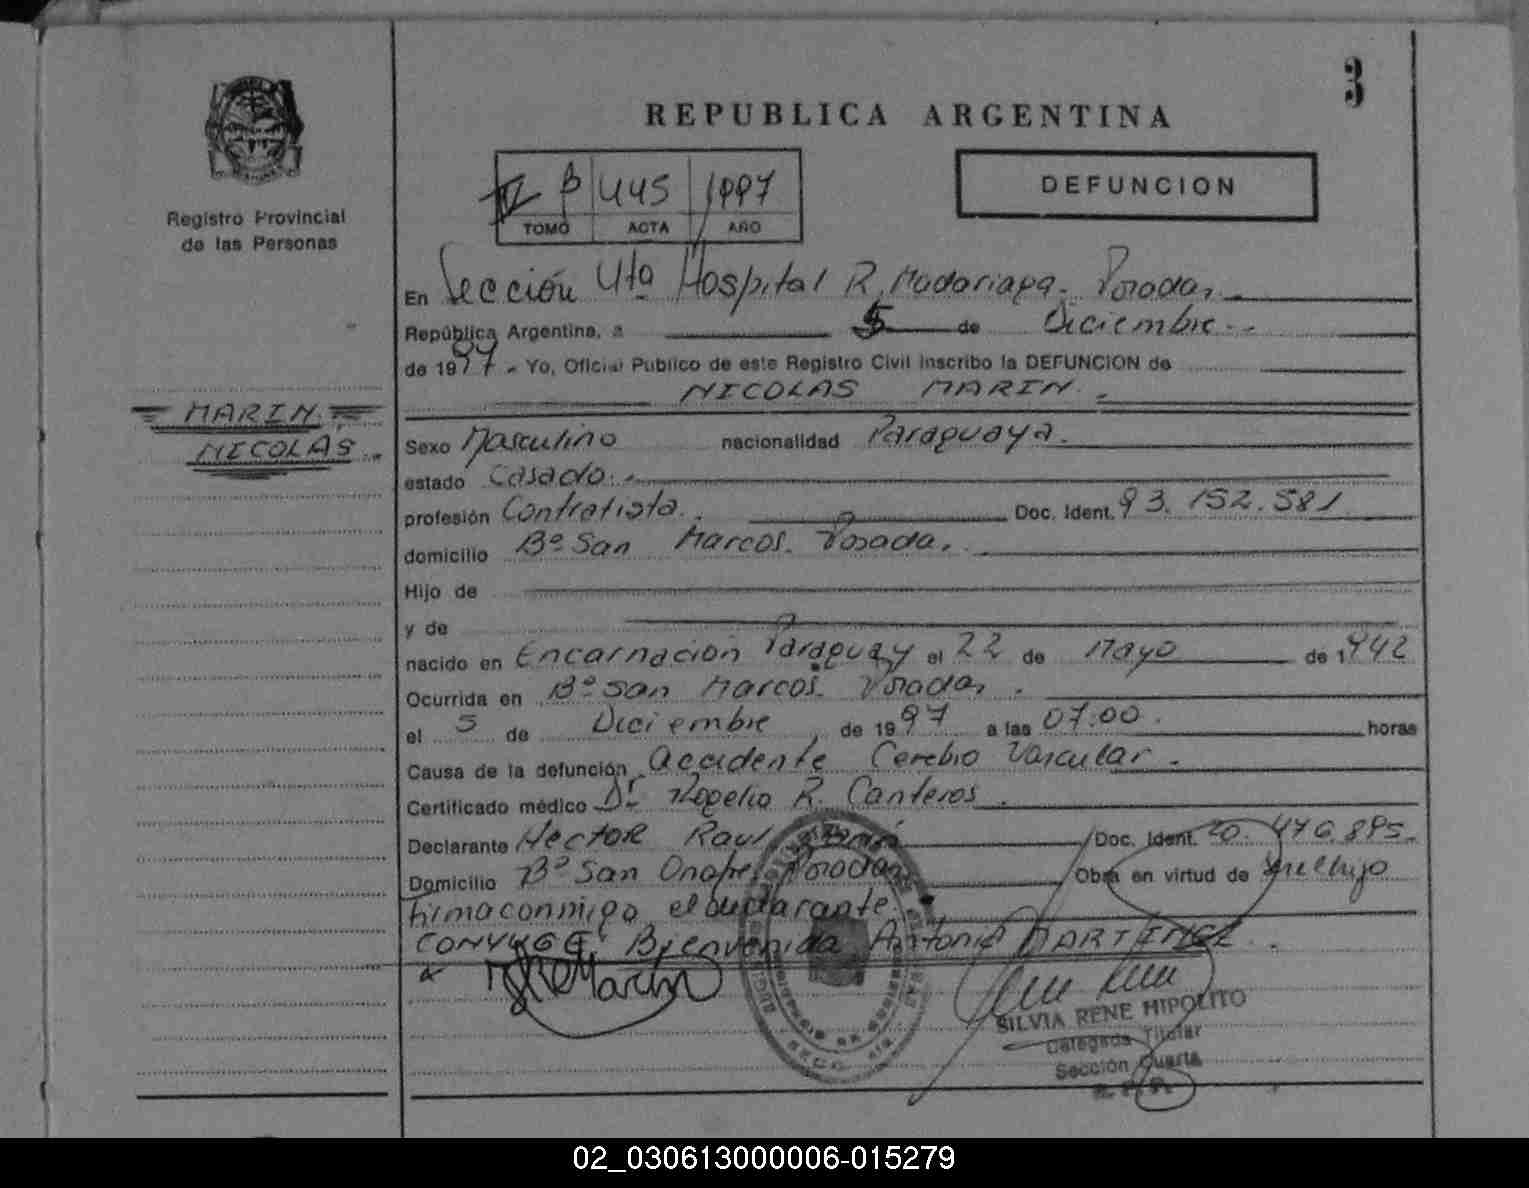 3
REPUBLICA ARGENTINA
Registro Provincial
de las Personas
445 1997
TOMO ACTA AÑO
DEFUNCION
En Sección 4ta Hospital R. Madariaga. Posadas.
República Argentina, a 5 de Diciembre
de 1997. Yo, Oficial Publico de este Registro Civil inscribo la DEFUNCION de
NICOLAS MARIN.
MARIN
NICOLAS
Sexo Masculino nacionalidad Paraguaya.
estado Casado.
profesión Contratista. Doc. Ident. 93.152.581
domicilio Bº San Marcos. Posadas.
Hijo de
y de
nacido en Encarnacion Paraguay el 22 de Mayo de 1942
Ocurrida en Bº San Marcos. Posadas.
el 5 de Diciembre de 1997 a las 07:00. horas
Causa de la defunción Accidente Cerebro Vascular.
Certificado médico Dr. Rogelio R. Canteros.
Declarante Hector Raul Doc. Ident. 20.476.895.
Domicilio Bº San Onofre Posadas Obra en virtud de ser el hijo
firma conmigo el declarante.
CONYUGE: Bienvenida Antonia MARTINEZ.
SILVIA RENE HIPOLITO
Delegada Titular
Sección Cuarta
02_030613000006-015279